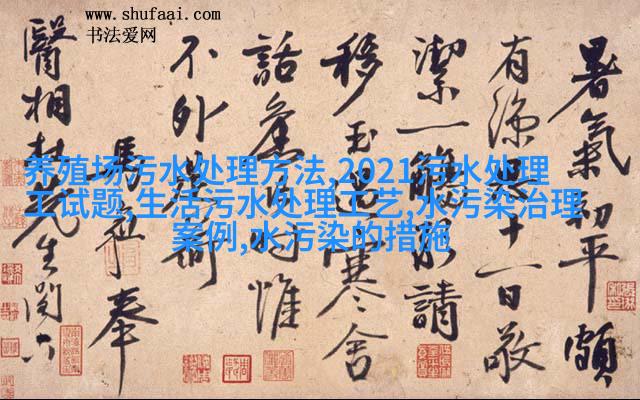 www.shufaai.com
书法爱网
养殖场污水处理方法,2021污水处理
工试题,生活污水处理工艺,水污染治理
案例,水污染的措施
暑氣初平頗
有涼思十一日敬
潔一觴請
移玉過寒舍
話舊惟
不外
馬奉
醫相杜先生閣下